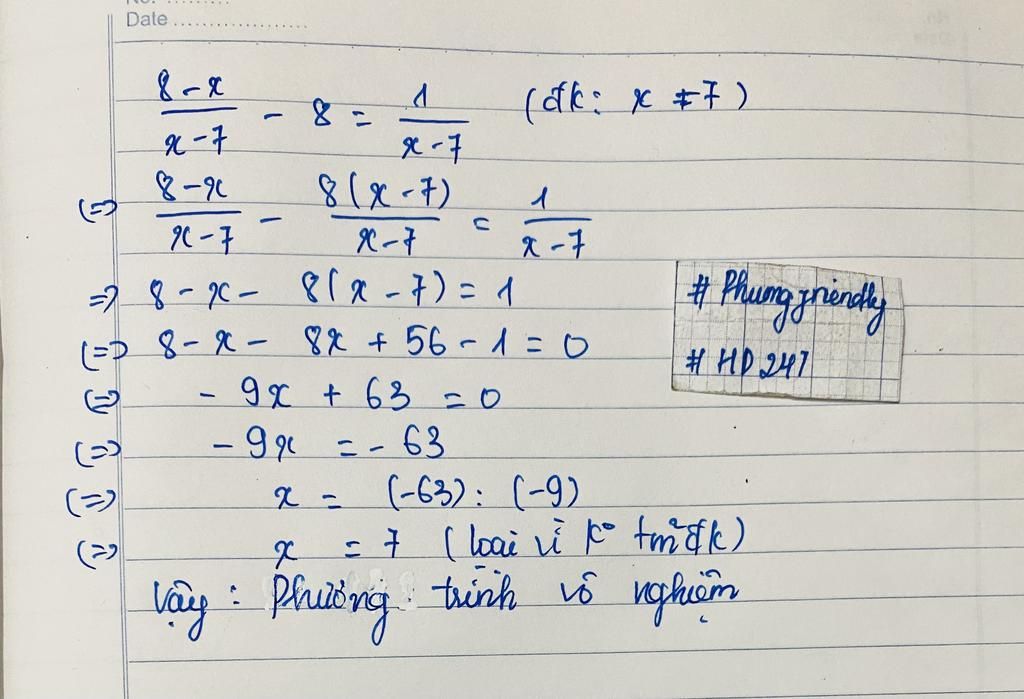 Date ....................
8-x/x-7 - 8 = 1/x-7 (đk: x ≠ 7)
(=) 8-x/x-7 - 8(x-7)/x-7 = 1/x-7
=) 8 - x - 8(x - 7) = 1
(=) 8 - x - 8x + 56 - 1 = 0
(=) - 9x + 63 = 0
(=) - 9x = - 63
(=) x = (-63) : (-9)
(=) x = 7 (loại vì k° tm² đk)
Vậy : Phương trình vô nghiệm
# Phungfriendly
# HD 247